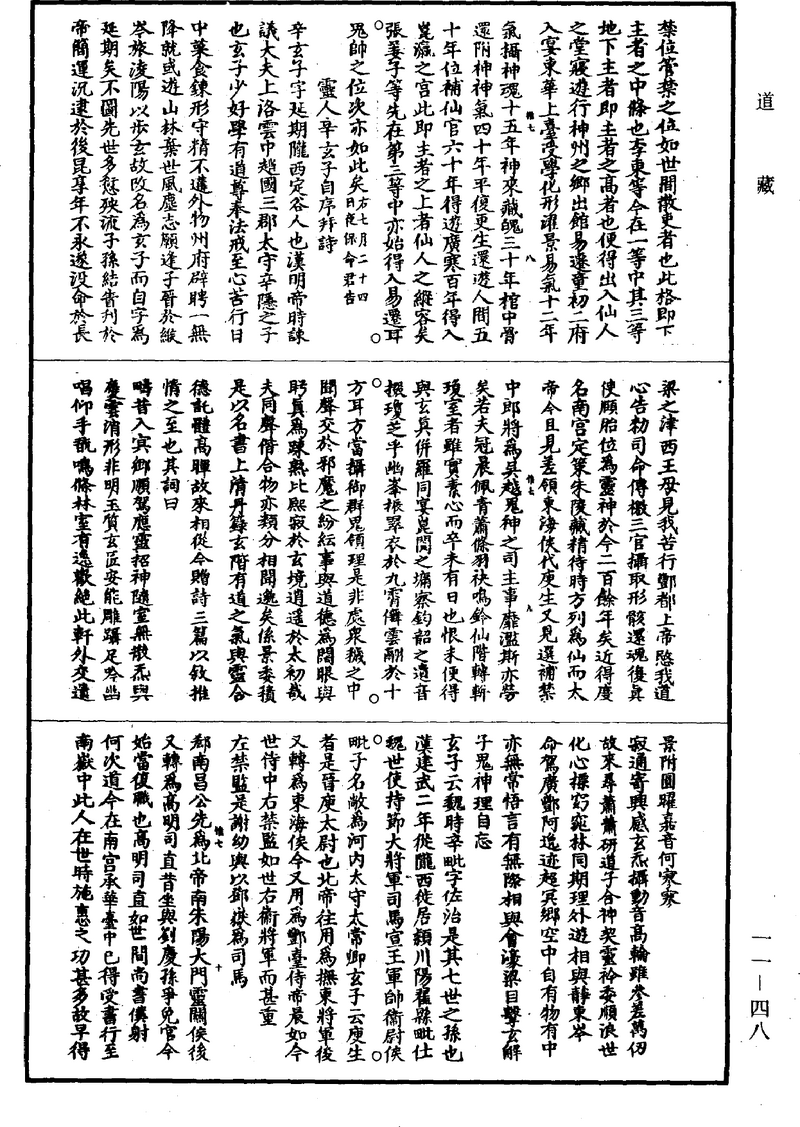 道藏
一一—四八
禁位管禁之位如世間散吏者也此格即下
主者之中條也李東等今在一等中其三等
地下主者即主者之高者也便得出入仙人
之堂寢遊行神州之鄉出館易遷童初二府
入宴東華上臺受學化形濯景易氣十二年
氣攝神魂十五年神來藏魄三十年棺中骨
還附神神氣四十年平復更生還遊人間五
十年位補仙官六十年得遊廣寒百年得入
崑瀛之宮此即主者之上者仙人之縱容矣
張姜子等先在第三等中亦始得入易遷耳
鬼帥之位次亦如此矣右七月二十四日夜保命君告
靈人辛玄子自序并詩
辛玄子字延期隴西定谷人也漢明帝時諫
議大夫上洛雲中趙國三郡太守辛隱之子
也玄子少好學有道尊奉法戒至心苦行日
中菜食鍊形守精不遘外物州府辟聘一無
降就或遊山林棄世風塵志願逢子晉於緱
岑旅淩陽以步玄故改名為玄子而自字為
延期矣不圖先世多愆殃流子孫結眚刊於
帝簡運沉逮於後昆享年不永遂沒命於長
梁之津西王母見我苦行酆都上帝愍我道
心告勑司命傳檄三官攝取形骸還魂復真
使頤胎位為靈神於今二百餘年矣近得度
名南宮定策朱陵藏精待時方列為仙而太
帝今且見差領東海侯代庾生又見選補禁
中郎將為吳越鬼神之司主事靡濫斯亦勞
矣若夫冠晨佩青蕭條羽袂鳴鈴仙階轉軿
瓊室者雖實素心而卒未有日也恨未便得
與玄真併羅同宴崑閬之墉寮釣韶之遺音
掇瓊芝乎幽峯振翠衣於九霄儛雲翮於十
方耳方當攝御群鬼領理是非處衆穢之中
聞聲交於邪魔之紛紜事與道德為闊眼與
肟真為疎熟比熙寂於玄境逍遥於太初哉
夫同聲偕合物亦類分相聞逸矣係景委積
是以名書上清丹籙玄階有道之氣與靈合
德託體高暉故來相從今贈詩三篇以敘推
情之至也其詞曰
疇昔入冥鄉順駕應靈招神隨空無散炁與
慶雲消形非明玉質玄匠安能雕蹀足吟幽
唱仰手翫鳴條林室有逸歡絕此軒外交遺
景附圓曜嘉音何寥寥
寂通寄興感玄炁攝動音高輪雖參差萬仞
故來尋蕭蕭研道子合神契靈衿委順浪世
化心標窈窕林同期理外遊相與靜東岑
命駕廣酆阿逸迹超冥鄉空中自有物有中
亦無常悟言有無際相與會濠梁目擊玄解
子鬼神理自忘
玄子云魏時辛毗字佐治是其七世之孫也
漢建武二年從隴西徙居潁川陽翟縣毗仕
魏世使持節大將軍司馬宣王軍師衞尉侯
毗子名敞為河內太守太常卿玄子云庾生
者是晉庾太尉也北帝往用為撫東將軍後
又轉為東海侯今又用為酆臺侍帝晨如今
世侍中右禁監如世右衞將軍而甚重
左禁監是謝幼輿以鄧嶽為司馬
郗南昌公先為北帝南朱陽大門靈關侯後
又轉為高明司直昔坐與劉慶孫爭免官今
始當復職也高明司直如世間尚書僕射
何次道今在南宮承華臺中已得受書行至
南嶽中此人在世時施惠之功甚多故早得